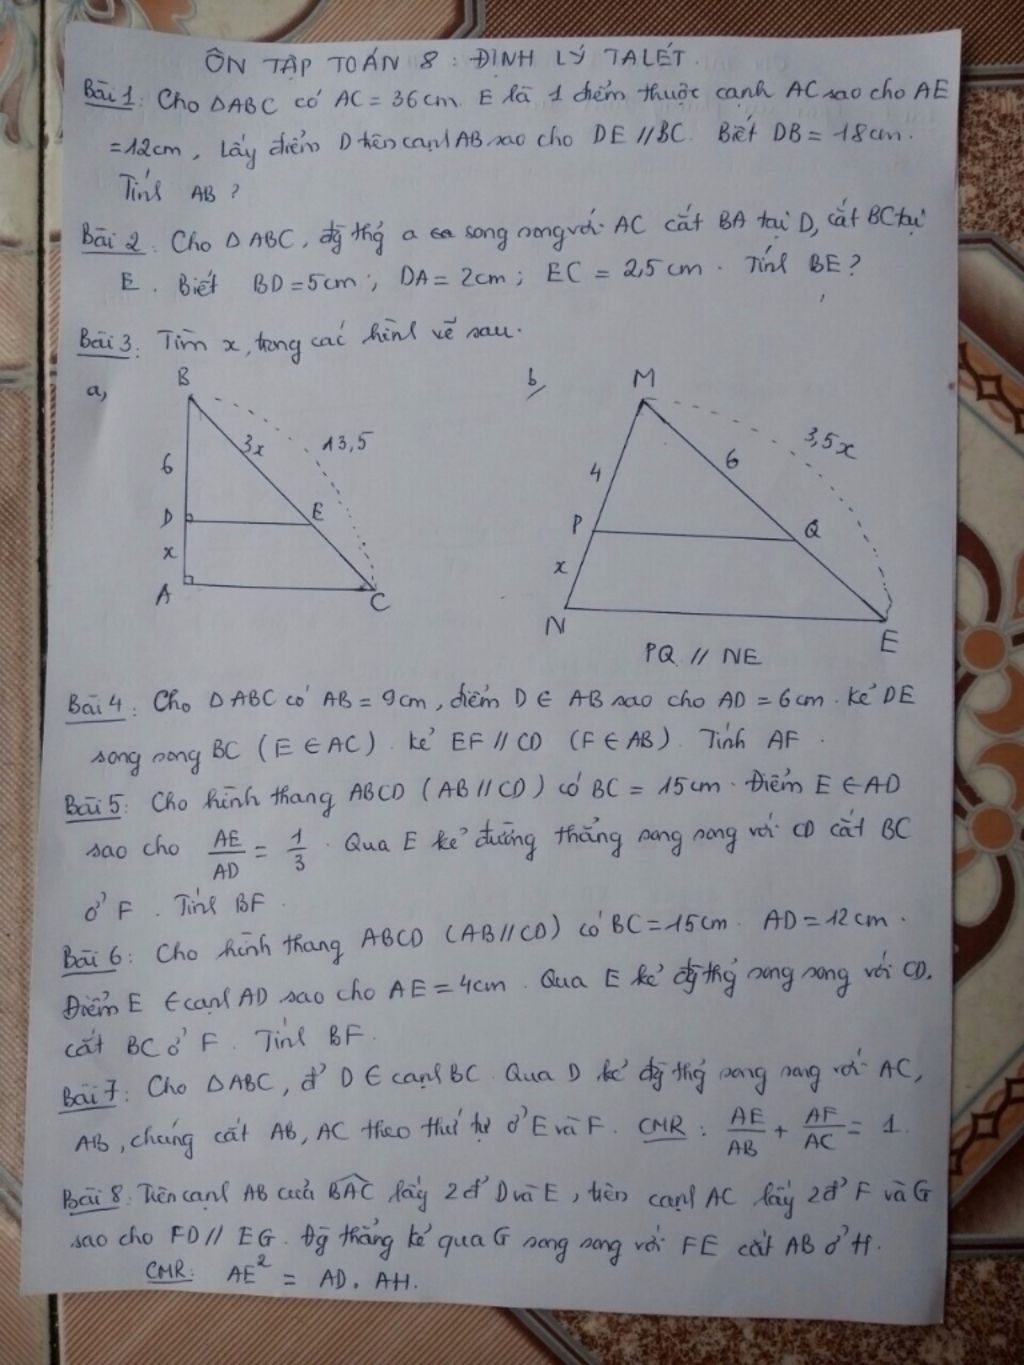 ÔN TẬP TOÁN 8 : ĐỊNH LÝ TALÉT.
Bài 1: Cho ΔABC có AC = 36cm. E là 1 điểm thuộc cạnh AC sao cho AE
= 12cm, lấy điểm D trên cạnh AB sao cho DE // BC. Biết DB = 18cm.
Tính AB ?
Bài 2: Cho ΔABC, đg thg a song song với AC cắt BA tại D, cắt BC tại
E. Biết BD = 5cm; DA = 2cm; EC = 2,5cm. Tính BE?
Bài 3: Tìm x, trong các hình vẽ sau.
a, b,
B
6
3x
13,5
D
E
x
A
C
M
3,5x
4
6
P
Q
x
N
E
PQ // NE
Bài 4: Cho ΔABC có AB = 9cm, điểm D ∈ AB sao cho AD = 6cm. Kẻ DE
song song BC (E ∈ AC). Kẻ EF // CD (F ∈ AB). Tính AF.
Bài 5: Cho hình thang ABCD (AB // CD) có BC = 15cm. Điểm E ∈ AD
sao cho AE/AD = 1/3. Qua E kẻ đường thẳng song song với CD cắt BC
ở F. Tính BF.
Bài 6: Cho hình thang ABCD (AB // CD) có BC = 15cm. AD = 12cm.
Điểm E ∈ cạnh AD sao cho AE = 4cm. Qua E kẻ đg thg song song với CD.
cắt BC ở F. Tính BF.
Bài 7: Cho ΔABC, đ' D ∈ cạnh BC. Qua D kẻ đg thg song song với AC,
AB, chúng cắt AB, AC theo thứ tự ở E và F. CMR: AE/AB + AF/AC = 1.
Bài 8: Trên cạnh AB của BAC lấy 2 đ' D và E, trên cạnh AC lấy 2 đ' F và G
sao cho FD // EG. Đg thẳng kẻ qua G song song với FE cắt AB ở H.
CMR: AE² = AD. AH.